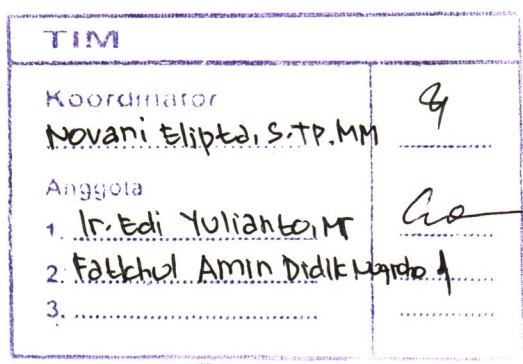 TIM
Koordinator
Novani Elipta, S.TP, MM
Anggota
1. Ir. Edi Yulianto, MT
2. Fatkhul Amin Didik Nugroho
3. ..............................